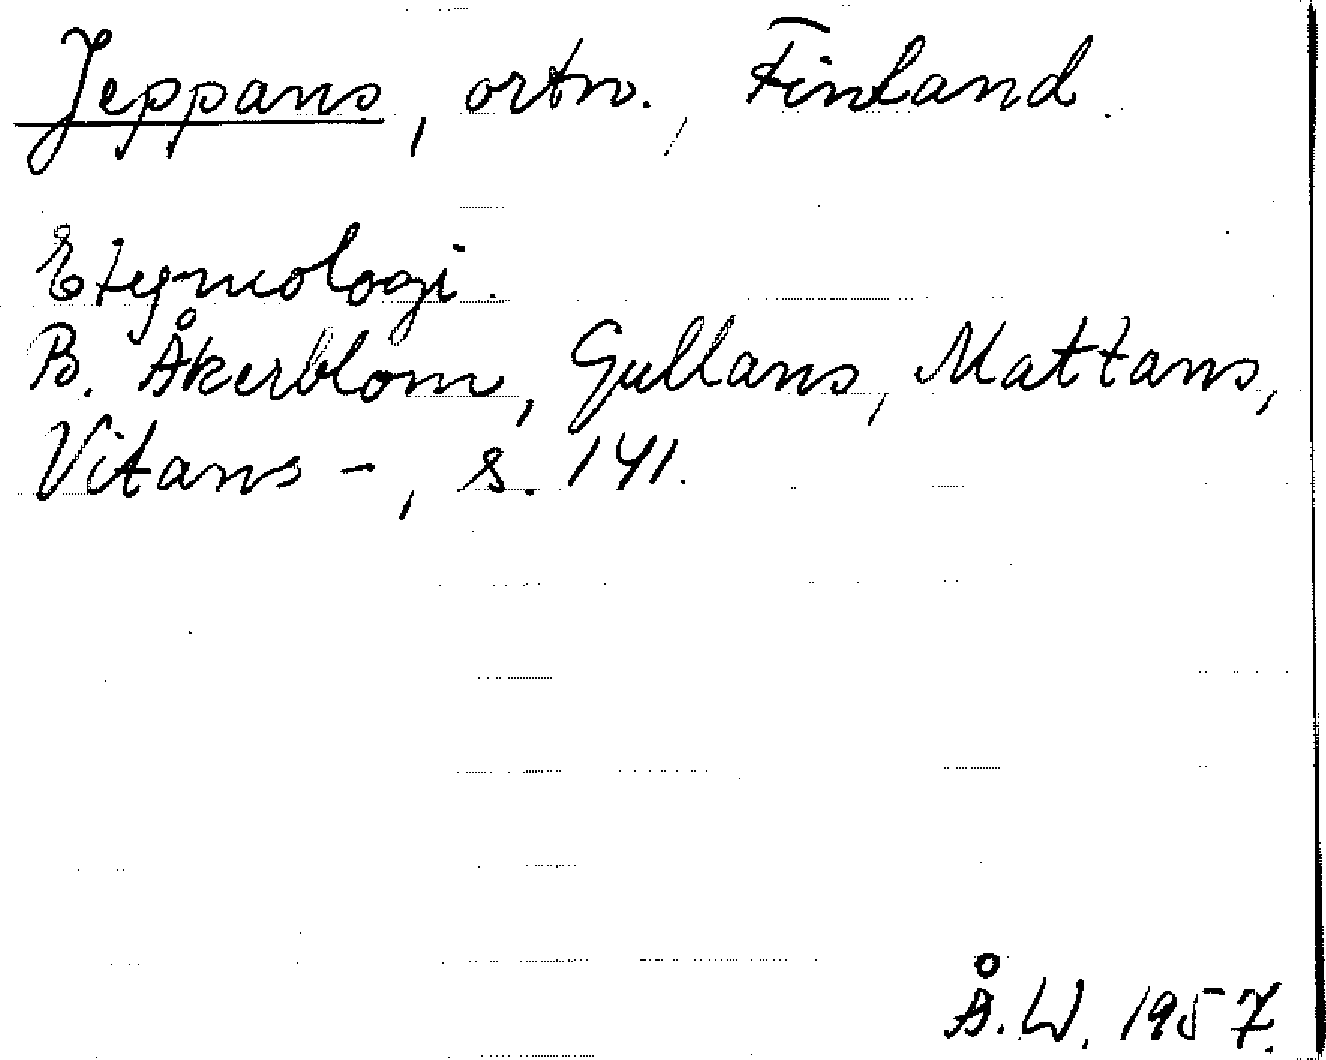 Jeppans, ortn., Finland.
Etymologi.
B. Åkerblom, Gullans, Mattans,
Vitans -, s. 141.
Å.W. 1957.